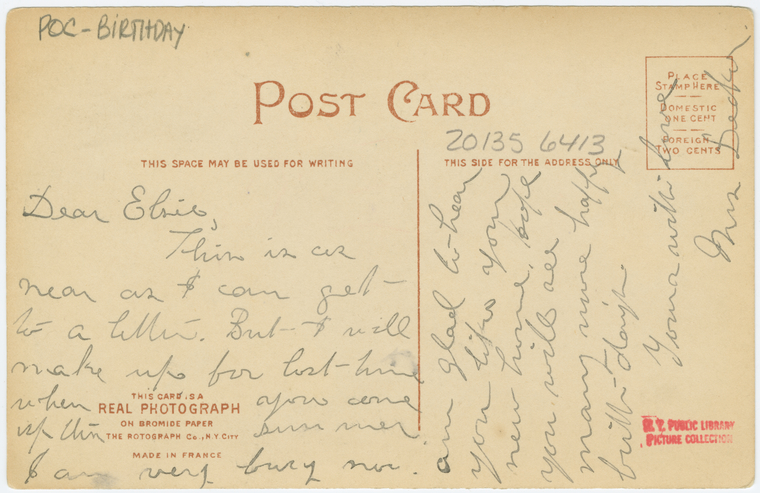 POC-BIRTHDAY
POST CARD
PLACE
STAMP HERE
DOMESTIC
ONE CENT
FOREIGN
TWO CENTS
20135 6413
THIS SPACE MAY BE USED FOR WRITING
THIS SIDE FOR THE ADDRESS ONLY
Dear Elsie,
This is as
near as I can get
to a letter. But I will
make up for lost time
when you come
up this summer
I am very busy now.
am glad to hear
you like your
new home, hope
you will see
many more happy
birth-days
Yours with love
Mrs Decker.
THIS CARD IS A
REAL PHOTOGRAPH
ON BROMIDE PAPER
THE ROTOGRAPH Co., N.Y. CITY
MADE IN FRANCE
N.Y. PUBLIC LIBRARY
PICTURE COLLECTION